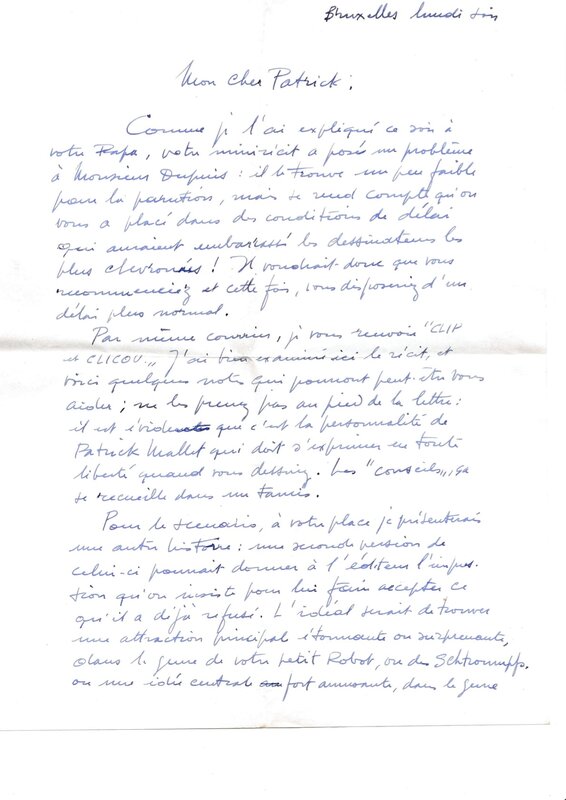 Bruxelles lundi soir
Mon cher Patrick :
Comme je l'ai expliqué ce soir à
votre Papa, votre minirécit a posé un problème
à Monsieur Dupuis : il le trouve un peu faible
pour la parution, mais se rend compte qu'on
vous a placé dans des conditions de délai
qui auraient embarassé les dessinateurs les
plus chevronnés ! Il voudrait donc que vous
recommenciez et cette fois, vous disposerez d'un
délai plus normal.
Par même courrier, je vous renvoie "CLIP
et CLICOU„. J'ai bien examiné ici le récit, et
voici quelques notes qui pourront peut-être vous
aider ; ne les prenez pas au pied de la lettre :
il est évident que c'est la personnalité de
Patrick Mallet qui doit s'exprimer en toute
liberté quand vous dessinez. Les "conseils„, ça
se recueille dans un tamis.
Pour le scenario, à votre place je présenterais
une autre histoire : une seconde version de
celui-ci pourrait donner à l'éditeur l'impres-
sion qu'on insiste pour lui faire accepter ce
qu'il a déjà refusé. L'idéal serait de trouver
une attraction principale étonnante ou surprenante,
dans le genre de votre petit Robot, ou des Schtroumpfs.
ou une idée centrale fort amusante, dans le genre